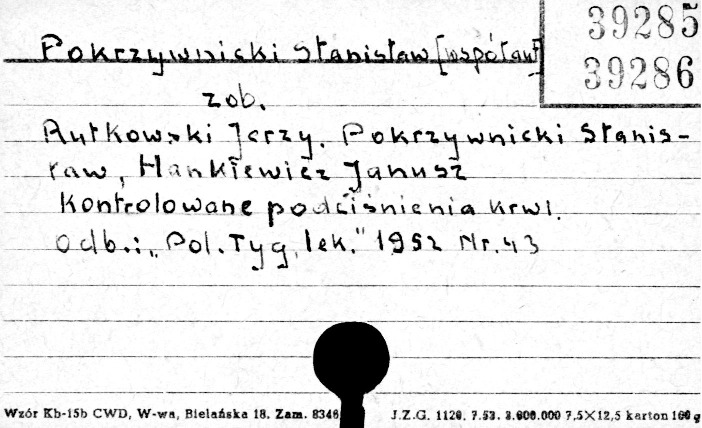 39285
Pokrzywnicki Stanisław [współaut]
39286
zob.
Rutkowski Jerzy. Pokrzywnicki Stanis-
ław, Hankiewicz Janusz
Kontrolowane podciśnienia krwi.
Odb.: „Pol. Tyg. lek." 1952 Nr. 43
Wzór Kb-15b CWD, W-wa, Bielańska 18. Zam. 8346
J.Z.G. 1120. 7.53. 3.600.000 7,5×12,5 karton 160 g